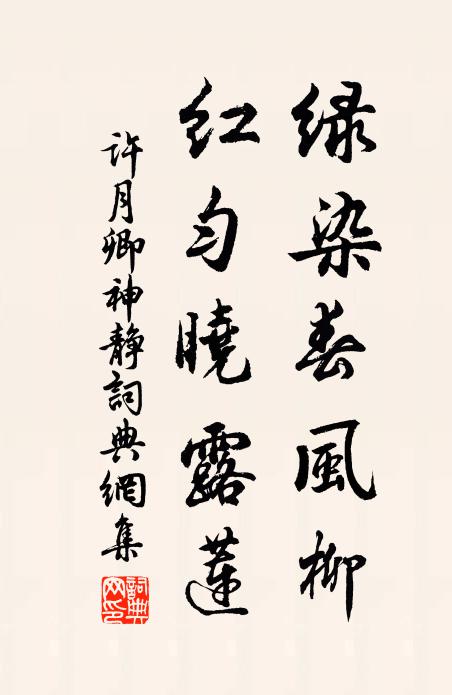 绿染春風柳
紅匀曉露蓮
許月卿神静詞典網集
詞典網印